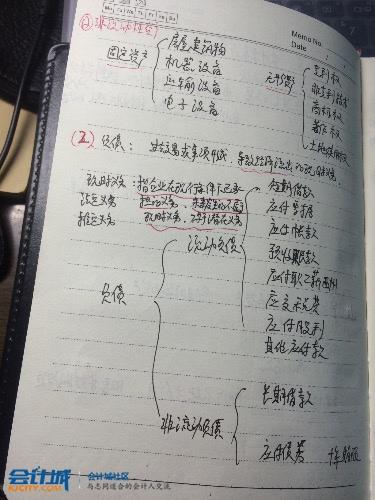 Memo No.
Date
② 非流动性资产
固定资产
房屋建筑物
机器设备
运输设备
电子设备
无形资产
专利权
非专利技术
商标权
著作权
土地使用权
(2) 负债：
现时义务：指企业在现行条件下已承
担的义务，未来发生的不属于
现时义务，
法定义务
推定义务
负债
流动负债
短期借款
应付票据
应付账款
预收账款
应付职工薪酬
应交税费
应付股利
其他应付款
非流动负债
长期借款
应付债券
会计城
KJCITY.COM
会计城社区
与志同道合的会计人交流